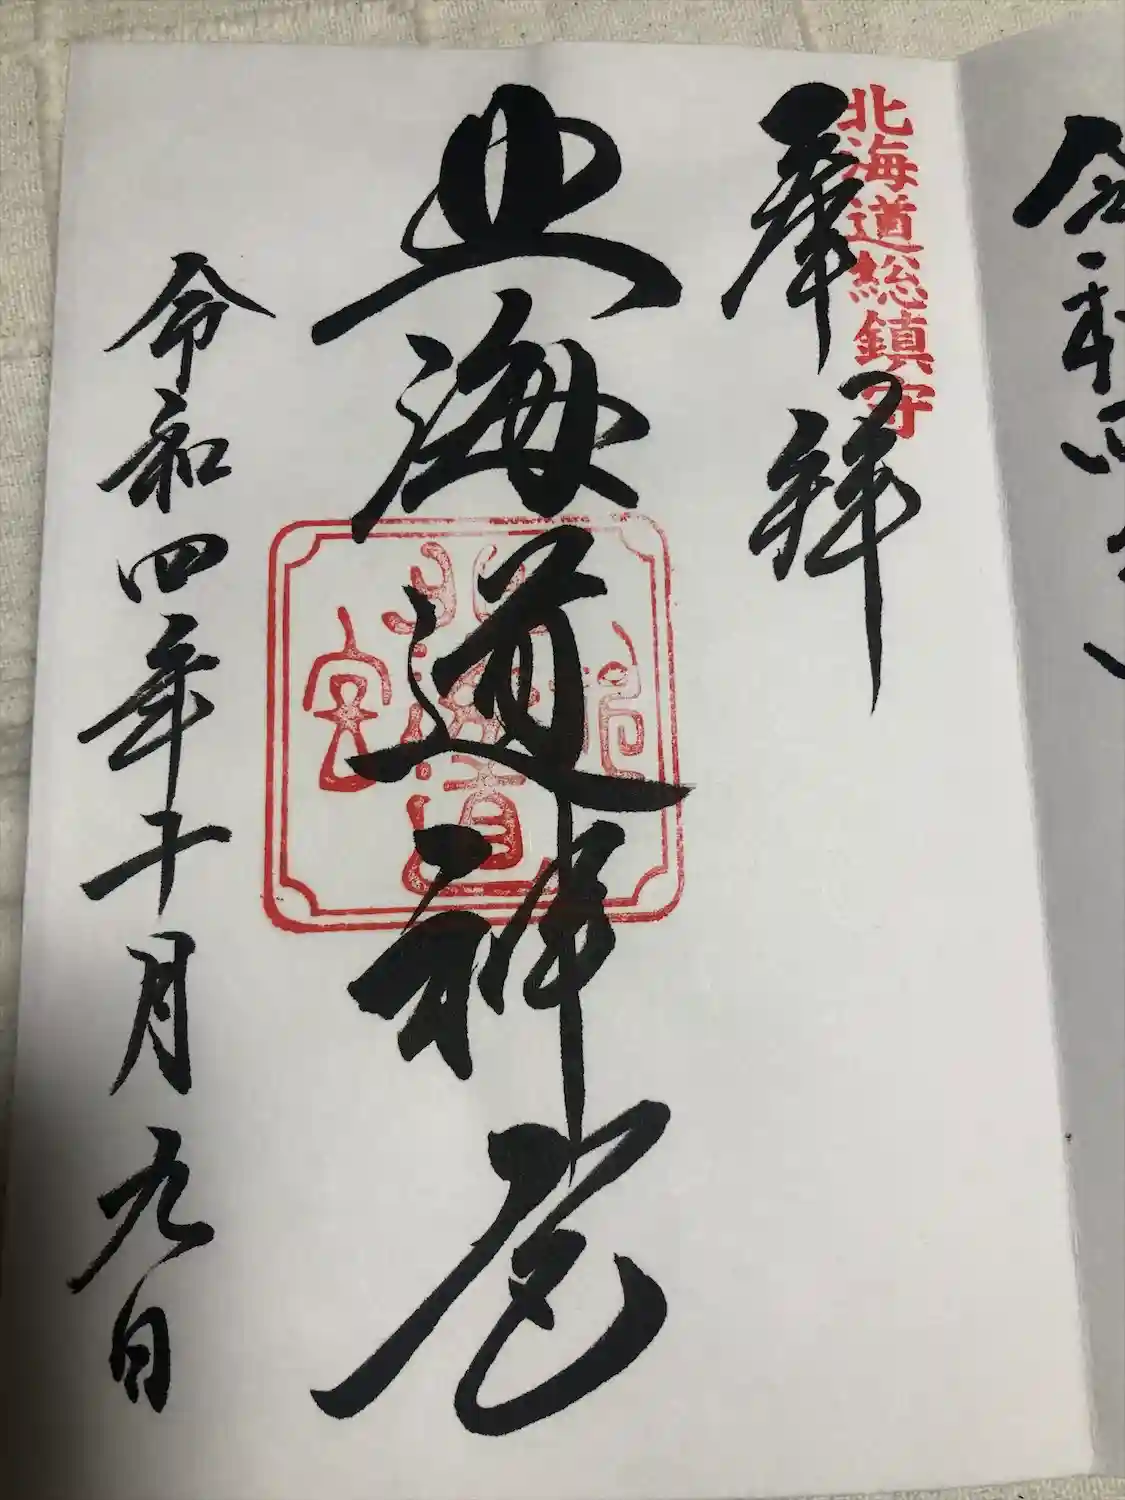 令和四
北海道総鎮守
奉拝
北海道神宮
北海道神宮
令和四年十月九日